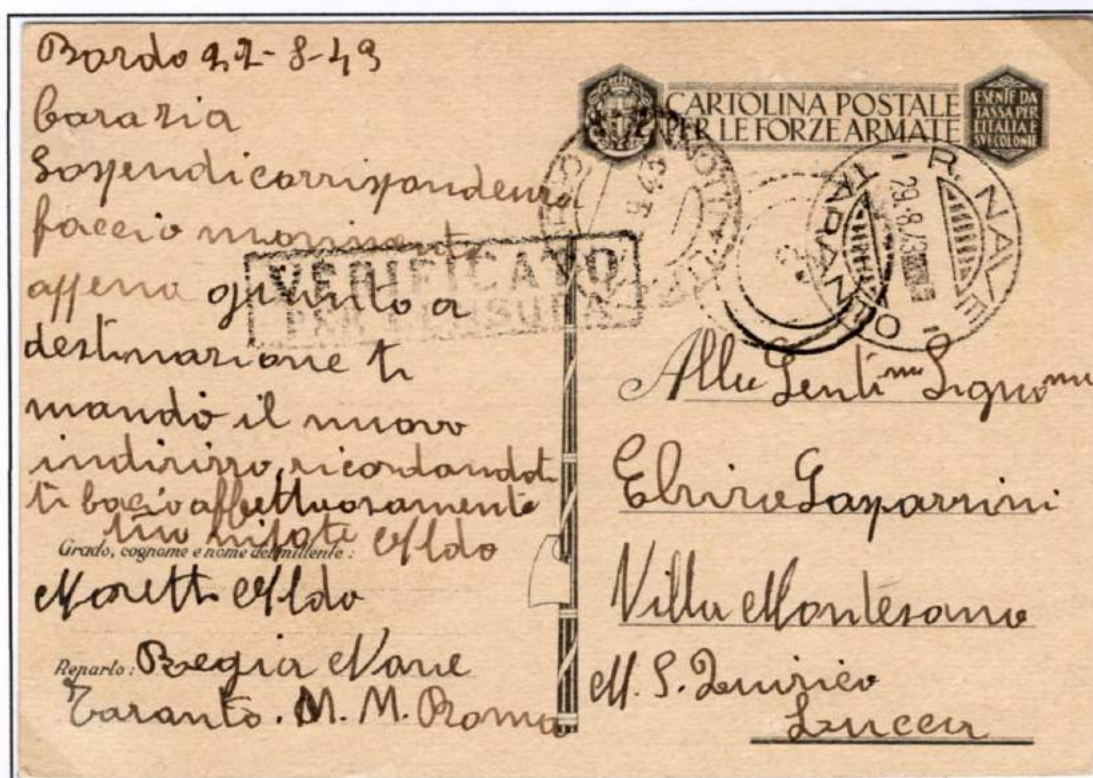 Bordo 22-8-43
Cara zia
Sospendi corrispondenza
faccio movimento
appena giunto a
destinazione ti
mando il nuovo
indirizzo, ricordandoti
ti bacio affettuosamente
tuo nipote Aldo
Grado, cognome e nome del mittente:
Moretti Aldo
Reparto: Regia Nave
Taranto. M. M. Roma
CARTOLINA POSTALE
PER LE FORZE ARMATE
ESENTE DA
TASSA PER
L'ITALIA E
SVE COLONIE
VERIFICATO
PER CENSURA
R. NAVE
29.8.43
TARANTO
Alla Genti.ma Signo
Elvira Gasparrini
Villa Montesano
M. S. Quirico
Lucca